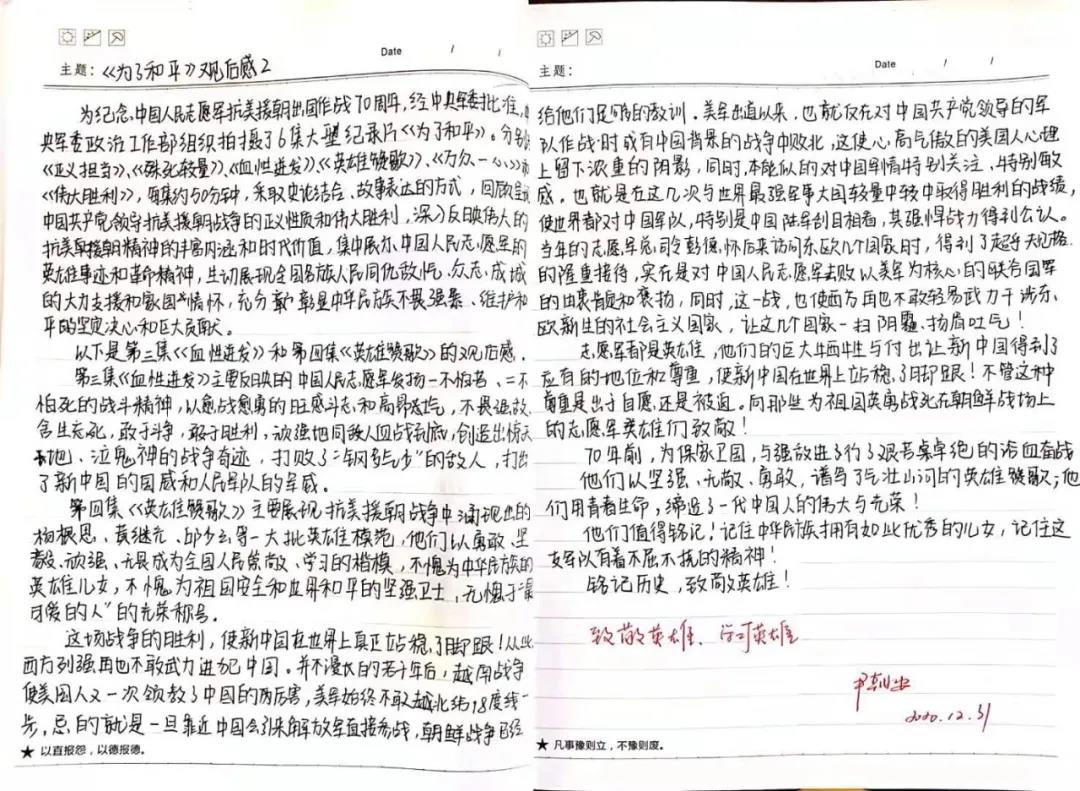 Date / /
主题：《为了和平》观后感2
为纪念中国人民志愿军抗美援朝出国作战70周年，经中央军委批准，
央军委政治工作部组织拍摄了6集大型纪录片《为了和平》。分别
《正义担当》、《殊死较量》、《血性迸发》、《英雄赞歌》、《万众一心》
《伟大胜利》，每集约50分钟，采取史论结合、故事表达的方式，回顾
中国共产党领导抗美援朝战争的正义性质和伟大胜利，深入反映伟大的
抗美援朝精神的丰富内涵和时代价值，集中展示中国人民志愿军的
英雄事迹和革命精神，生动展现全国各族人民同仇敌忾、众志成城
的大力支援和家国情怀，充分彰显中华民族不畏强暴、维护和
平的坚定决心和巨大贡献。
以下是第三集《血性迸发》和第四集《英雄赞歌》的观后感。
第三集《血性迸发》主要反映的中国人民志愿军发扬一不怕苦、二不
怕死的战斗精神，以愈战愈勇的旺盛斗志和高昂士气，不畏强敌，
舍生忘死，敢于斗争，敢于胜利，顽强地同敌人血战到底，创造出惊天
地、泣鬼神的战争奇迹，打败了"钢多气少"的敌人，打出
了新中国的国威和人民军队的军威。
第四集《英雄赞歌》主要展现抗美援朝战争中涌现出的
杨根思、黄继光、邱少云等一大批英雄模范，他们以勇敢、坚
毅、顽强、无畏成为全国人民崇敬、学习的楷模，不愧为中华民族的
英雄儿女，不愧为祖国安全和世界和平的坚强卫士，无愧于"最
可爱的人"的光荣称号。
这场战争的胜利，使新中国在世界上真正站稳了脚跟！从此
西方列强再也不敢武力进犯中国。并不漫长的若干年后，越南战争
使美国人又一次领教了中国的厉害，美军始终不敢越北纬18度线一
步，忌的就是一旦靠近中国会引来解放军直接参战，朝鲜战争已经
★ 以直报怨，以德报德。
Date / /
主题：
给他们足够的教训。美军出道以来，也就仅在对中国共产党领导的军
队作战时或有中国背景的战争中败北，这使心高气傲的美国人心理
上留下浓重的阴影，同时，本能似的对中国军情特别关注、特别敏
感。也就是在这几次与世界最强军事大国较量中较中取得胜利的战绩，
使世界都对中国军队，特别是中国陆军刮目相看，其强悍战力得到公认。
当年的志愿军总司令彭德怀后来访问东欧几个国家时，得到了超乎规格
的隆重接待，实在是对中国人民志愿军击败以美军为核心的联合国军
的由衷肯定和褒扬，同时，这一战，也使西方再也不敢轻易武力干涉东
欧新生的社会主义国家，让这几个国家一扫阴霾、扬眉吐气！
志愿军都是英雄，他们的巨大牺牲与付出让新中国得到了
应有的地位和尊重，使新中国在世界上站稳了脚跟！不管这种
尊重是出于自愿还是被迫。向那些为祖国英勇战死在朝鲜战场上
的志愿军英雄们致敬！
70年前，为保家卫国，与强敌进行了艰苦卓绝的浴血奋战
他们以坚强、无敌、勇敢，谱写了气壮山河的英雄赞歌；他
们用青春生命，缔造了一代中国人的伟大与光荣！
他们值得铭记！记住中华民族拥有如此优秀的儿女，记住这
支军队有着不屈不挠的精神！
铭记历史，致敬英雄！
致敬英雄、学习英雄
2020.12.31
★ 凡事豫则立，不豫则废。